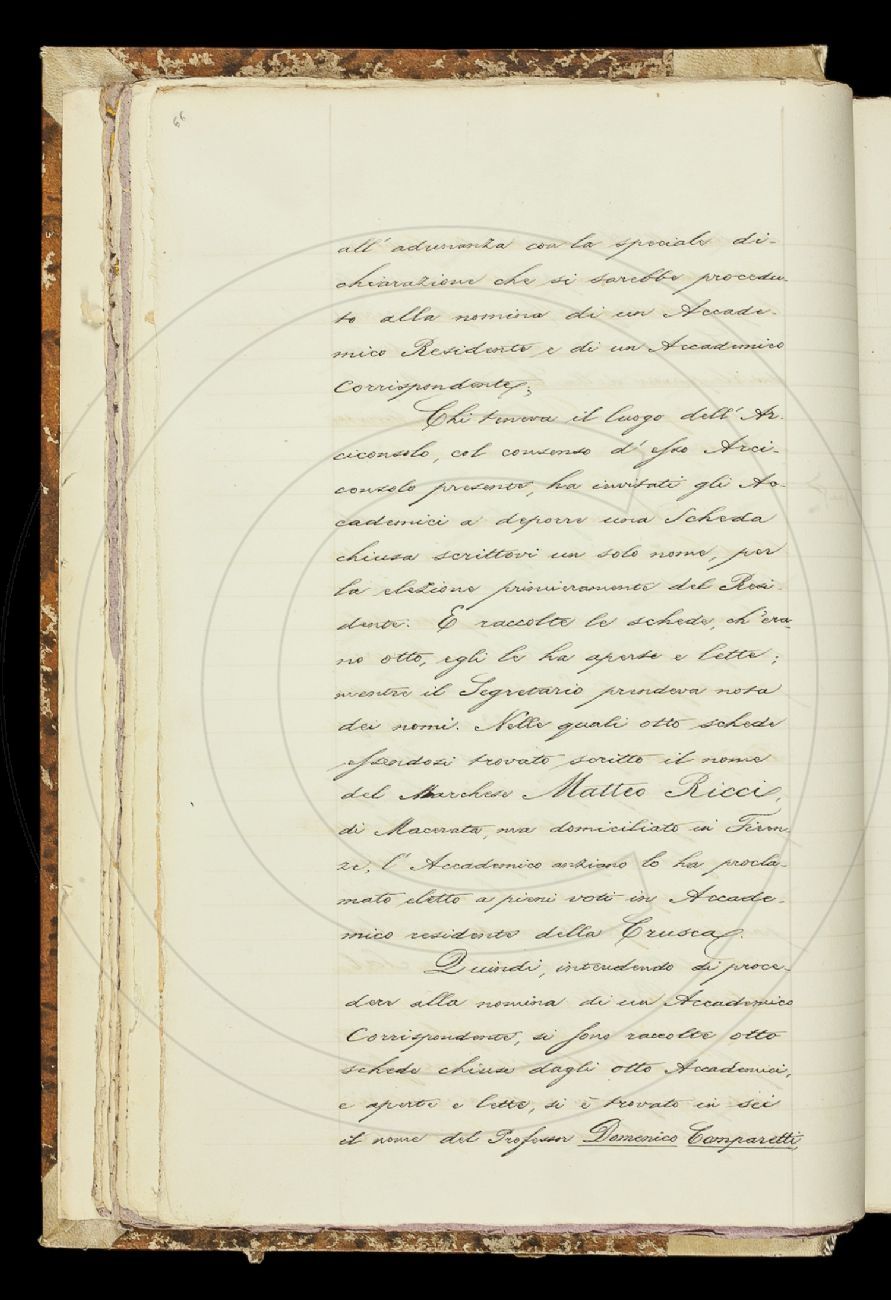 66
all' adunanza con la speciale di-
chiarazione che si sarebbe procedu-
to alla nomina di un Accade-
mico Residente e di un Accademico
Corrispondente;
Chi teneva il luogo dell' Ar-
ciconsolo, col consenso d' esso Arci-
consolo presente, ha invitati gli Ac-
cademici a deporre una Scheda
chiusa scrittovi un solo nome, per
la elezione primieramente del Resi-
dente. E raccolte le schede, ch' era-
no otto, egli le ha aperte e lette;
mentre il Segretario prendeva nota
dei nomi. Nelle quali otto schede
essendosi trovato scritto il nome
del Marchese Matteo Ricci,
di Macerata, ma domiciliato in Firen-
ze, l' Accademico anziano lo ha procla-
mato eletto a pieni voti in Accade-
mico residente della Crusca.
Quindi, intendendo di proce-
dere alla nomina di un Accademico
Corrispondente, si sono raccolte otto
schede chiuse dagli otto Accademici,
e aperte e lette, si è trovato in sei
il nome del Professor Domenico Comparetti